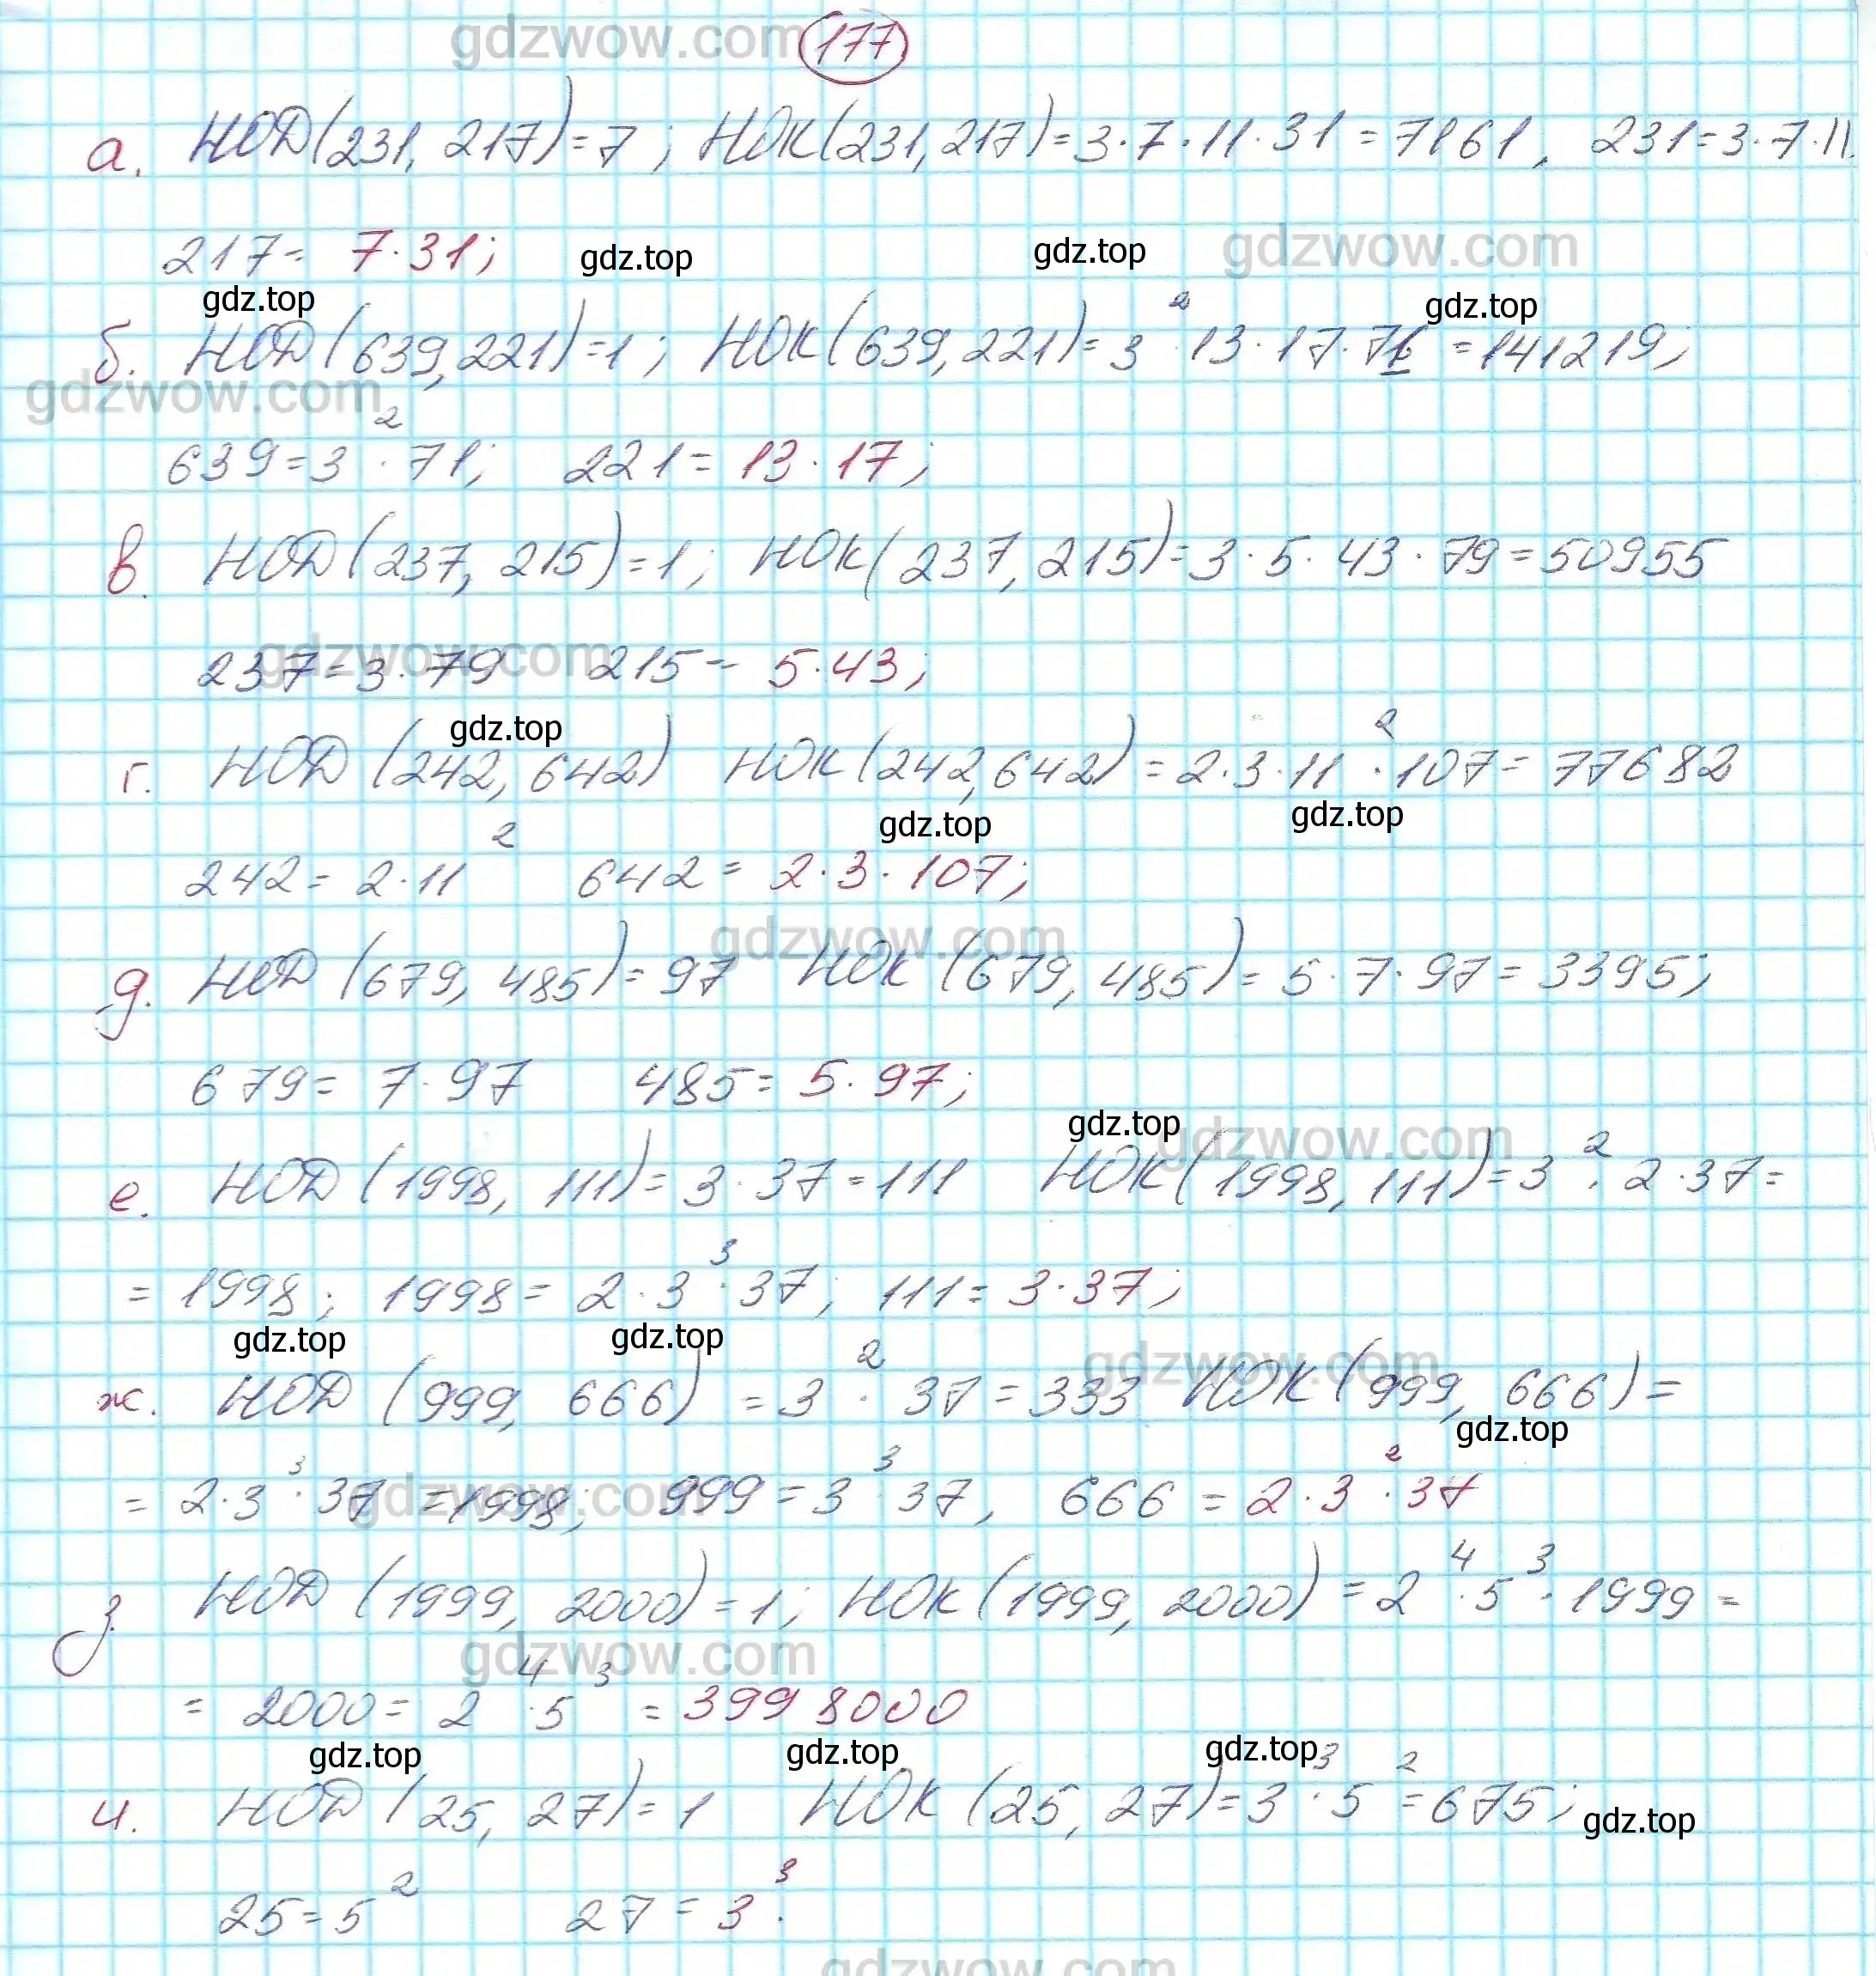 gdzwow.com 177
а. НОД(231, 217)=7; НОК(231,217)=3·7·11·31=7161, 231=3·7·11.
217= 7·31; gdz.top gdz.top gdzwow.com
gdz.top gdz.top
б. НОД(639,221)=1; НОК(639,221)=3²·13·17·71=141219;
gdzwow.com
639=3²·71; 221=13·17;
в. НОД(237, 215)=1; НОК(237,215)=3·5·43·79=50955
gdzwow.com
237=3·79 215= 5·43;
gdz.top
г. НОД (242, 642) НОК(242,642)=2·3·11²·107=77682
gdz.top gdz.top
242=2·11² 642=2·3·107;
gdzwow.com
д. НОД (679, 485)=97 НОК (679, 485)=5·7·97=3395;
679=7·97 485=5·97;
gdz.top gdzwow.com
е. НОД (1998, 111)=3·37=111 НОК(1998,111)=3²·2·37=
=1998; 1998=2·3³·37; 111=3·37;
gdz.top gdz.top gdzwow.com
ж. НОД (999, 666) =3²·37=333 НОК(999, 666)=
gdz.top
=2·3³·37=1998; 999=3³·37, 666=2·3²·37
gdzwow.com
з. НОД (1999, 2000)=1; НОК(1999, 2000)=2⁴·5³·1999=
gdzwow.com
= 2000=2⁴·5³ = 3998000
gdz.top gdz.top gdz.top
и. НОД (25, 27)=1 НОК (25, 27)=3³·5²=675;
gdz.top
25=5² 27=3³.
gdzwow.com